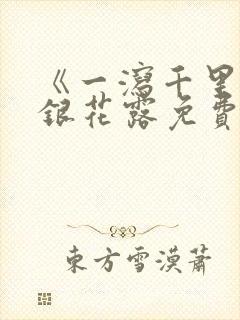 《一瀉千里
銀花露免費
東方雪漠蕭